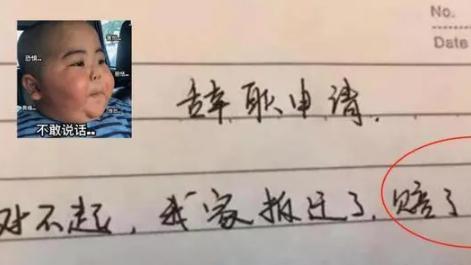 No.
Date
恐惧..
不敢说话..
辞职申请.
对不起，我家拆迁了，赔了